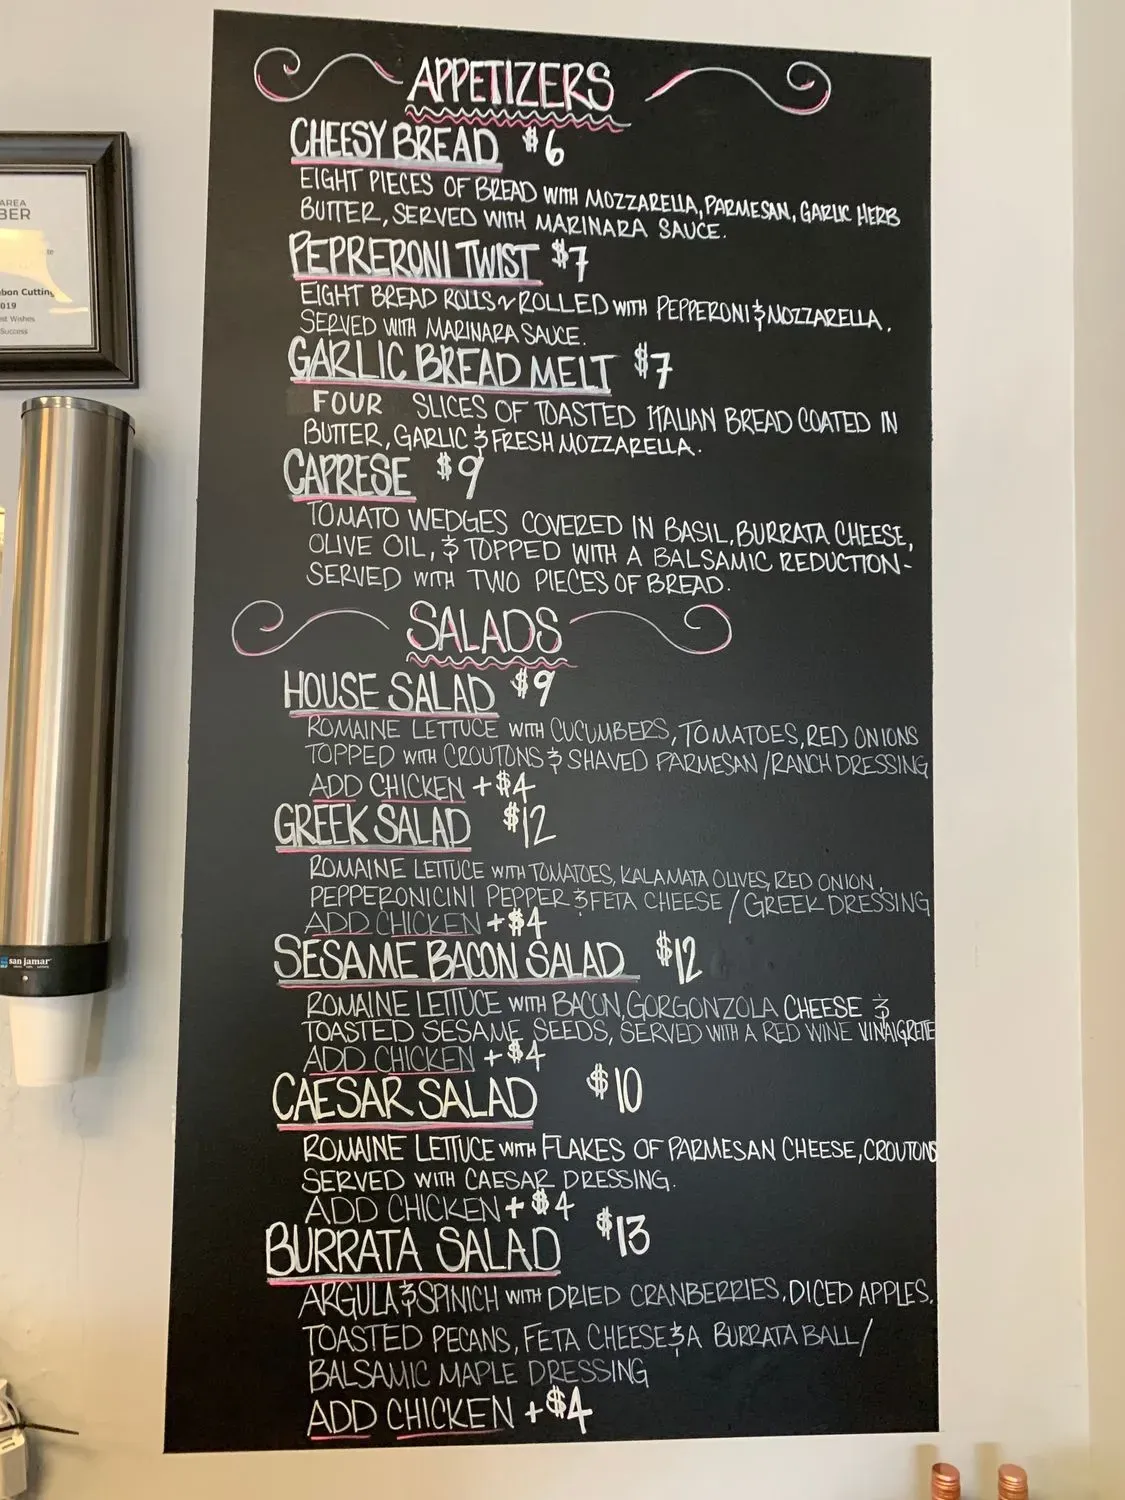 APPETIZERS
CHEESY BREAD $6
EIGHT PIECES OF BREAD WITH MOZZARELLA, PARMESAN, GARLIC HERB
BUTTER, SERVED WITH MARINARA SAUCE.
PEPRERONI TWIST $7
EIGHT BREAD ROLLS ~ ROLLED WITH PEPPERONI & MOZZARELLA.
SERVED WITH MARINARA SAUCE.
GARLIC BREAD MELT $7
FOUR SLICES OF TOASTED ITALIAN BREAD COATED IN
BUTTER, GARLIC & FRESH MOZZARELLA.
CAPRESE $9
TOMATO WEDGES COVERED IN BASIL, BURRATA CHEESE,
OLIVE OIL, & TOPPED WITH A BALSAMIC REDUCTION-
SERVED WITH TWO PIECES OF BREAD.
SALADS
HOUSE SALAD $9
ROMAINE LETTUCE WITH CUCUMBERS, TOMATOES, RED ONIONS
TOPPED WITH CROUTONS & SHAVED PARMESAN / RANCH DRESSING
ADD CHICKEN +$4
GREEK SALAD $12
ROMAINE LETTUCE WITH TOMATOES, KALAMATA OLIVES, RED ONION,
PEPPERONICINI PEPPER & FETA CHEESE / GREEK DRESSING
ADD CHICKEN +$4
SESAME BACON SALAD $12
ROMAINE LETTUCE WITH BACON, GORGONZOLA CHEESE &
TOASTED SESAME SEEDS, SERVED WITH A RED WINE VINAIGRETTE
ADD CHICKEN +$4
CAESAR SALAD $10
ROMAINE LETTUCE WITH FLAKES OF PARMESAN CHEESE, CROUTONS
SERVED WITH CAESAR DRESSING.
ADD CHICKEN +$4
BURRATA SALAD $13
ARGULA & SPINICH WITH DRIED CRANBERRIES, DICED APPLES,
TOASTED PECANS, FETA CHEESE & A BURRATA BALL /
BALSAMIC MAPLE DRESSING
ADD CHICKEN +$4
AREA
BER
bon Cutting
019
st Wishes
Success
san jamar